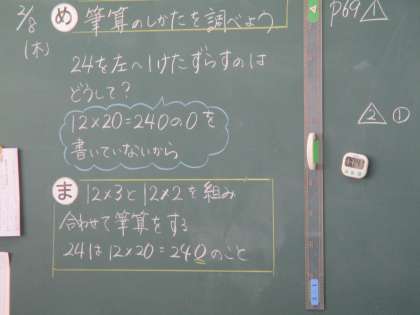 2/8
(木)
め 筆算のしかたを調べよう
24を左へ1けたずらすのは
どうして?
12×20=240の0を
書いていないから
ま 12×3と12×2を組み
合わせて筆算をする
24は12×20=240のこと
P69 1
2 ①